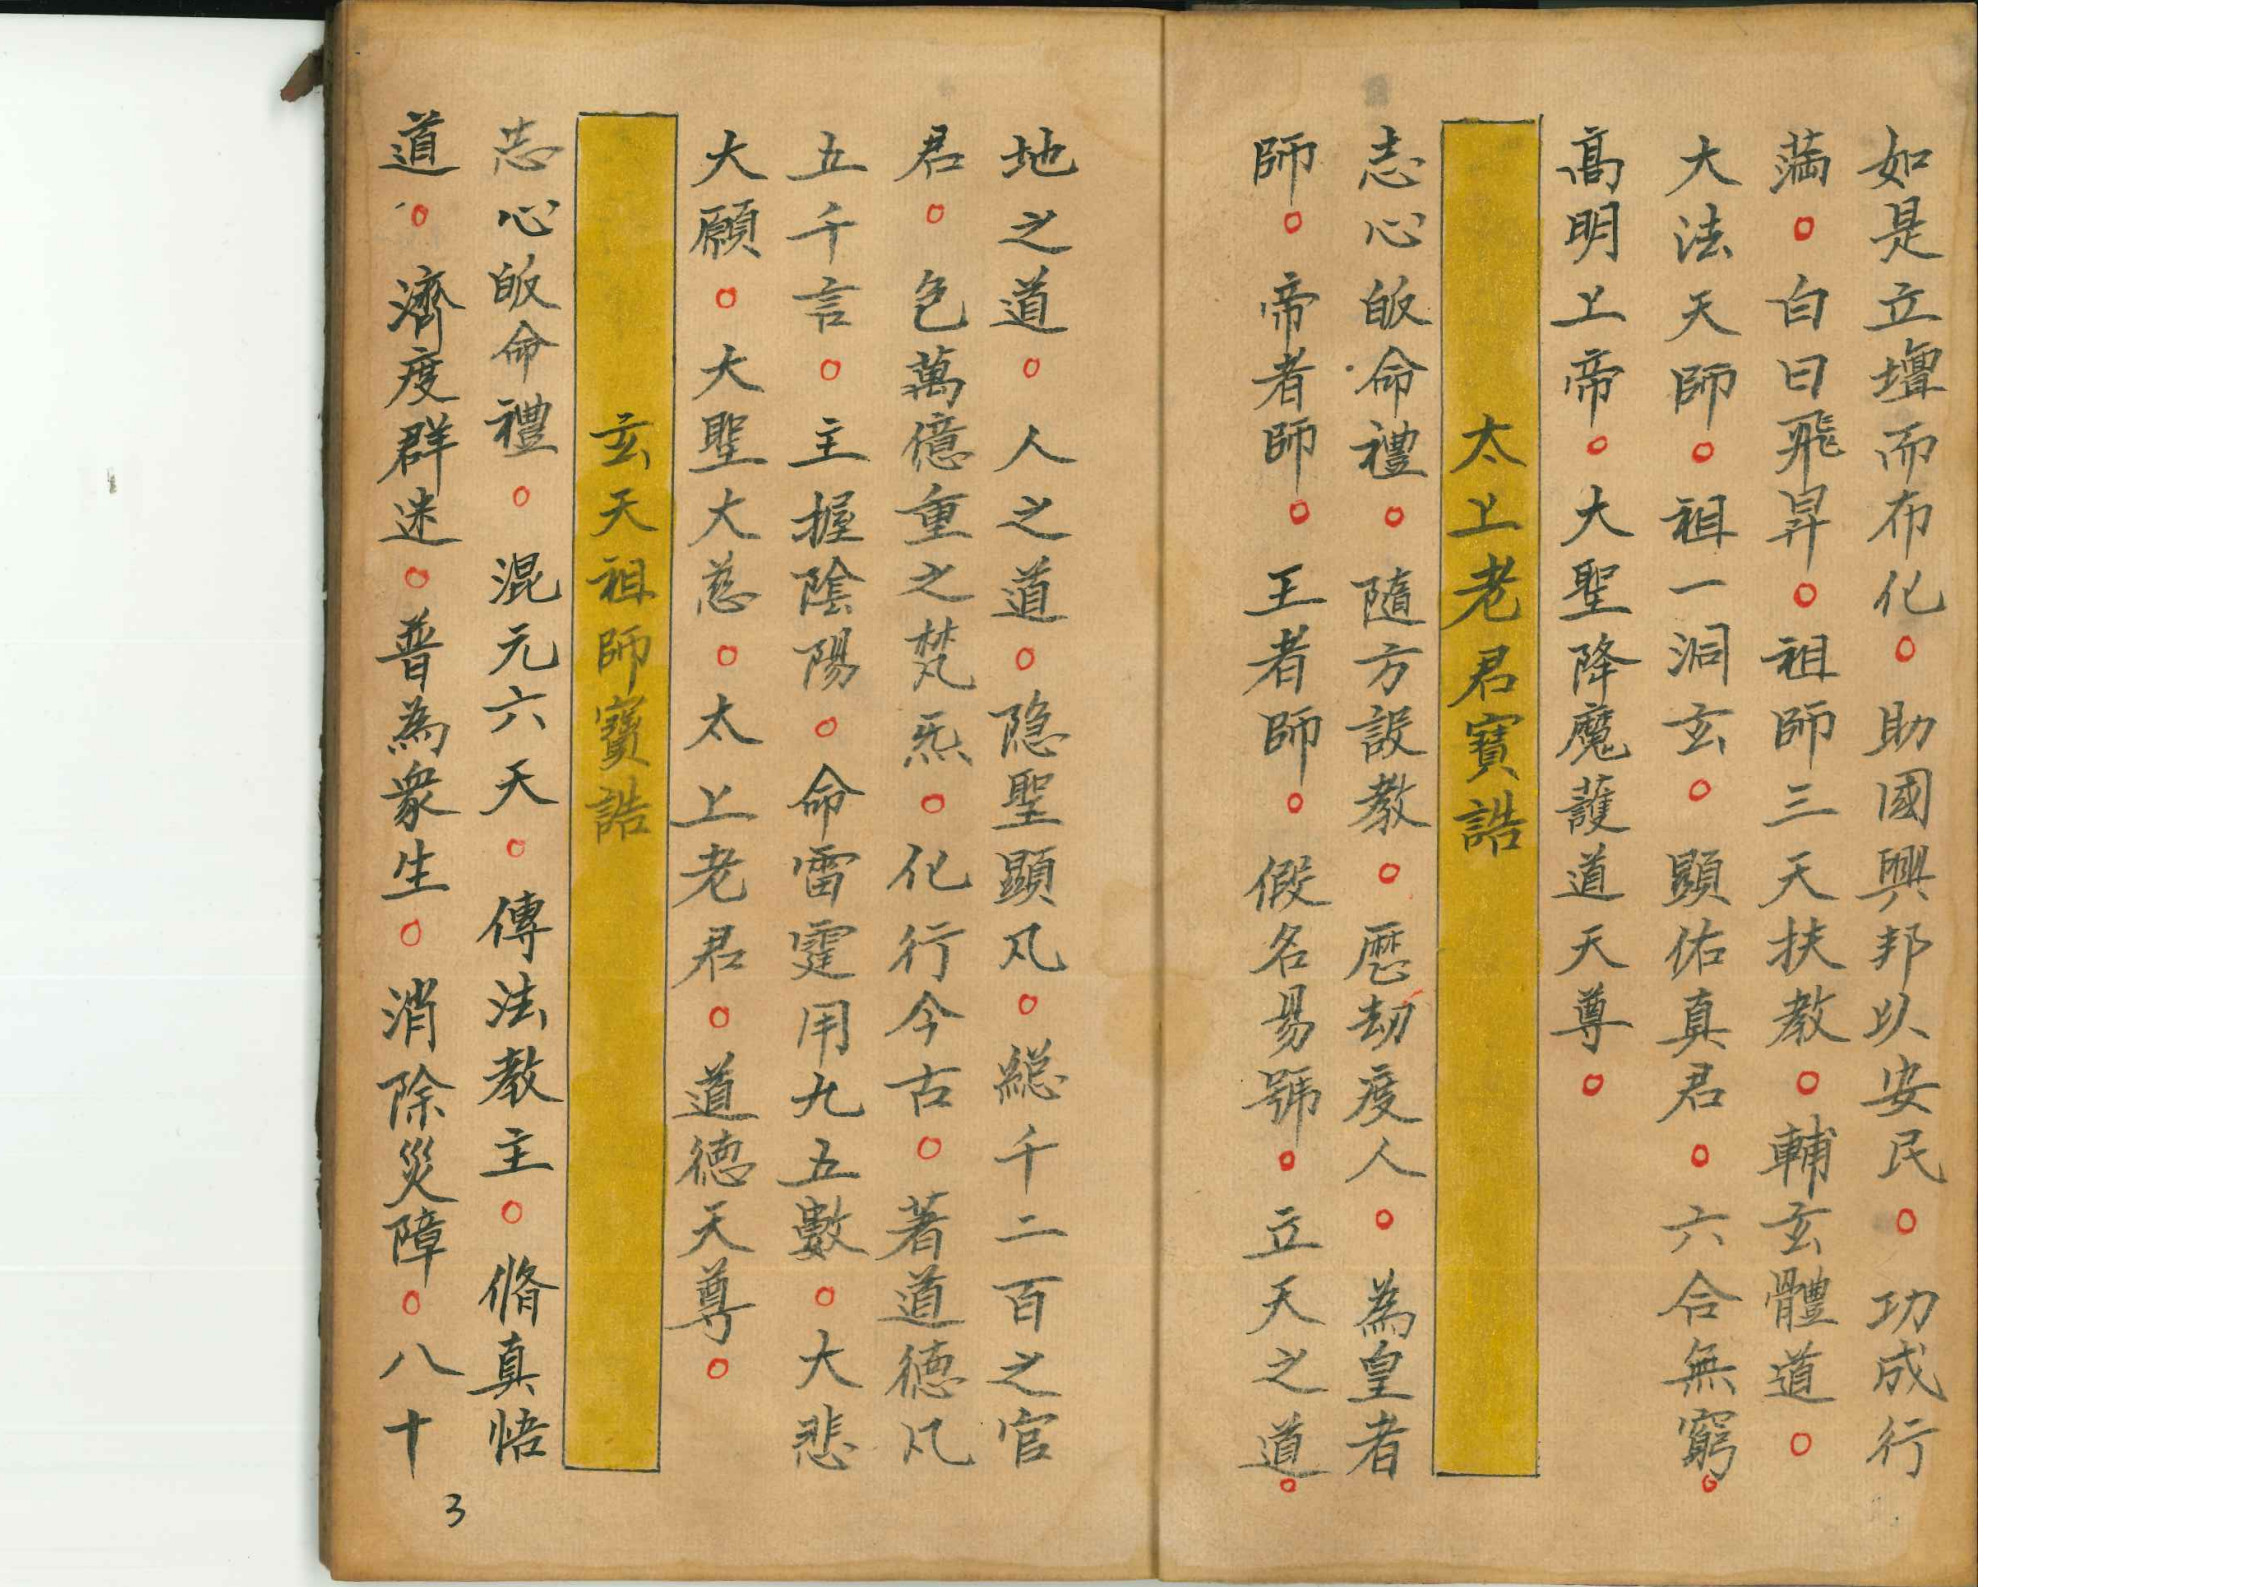 如是立壇而布化○助國興邦以安民○功成行
滿○白日飛昇○祖師三天扶教○輔玄體道○
大法天師○祖一洞玄○顕佑真君○六合無窮○
髙明上帝○大聖降魔護道天尊○
太上老君寶誥
志心皈命禮○隨方設教○歷劫度人○為皇者
師○帝者師○王者師○假名易號○立天之道○
地之道○人之道○隐聖顕凡○総千二百之官
君○包萬億重之梵炁○化行今古○著道德凡
五千言○主握陰陽○命雷霆用九五數○大悲
大願○大聖大慈○太上老君○道德天尊○
玄天祖師寶誥
志心皈命禮○混元六天○傳法教主○脩真悟
道○濟度群迷○普為衆生○消除災障○八十
3